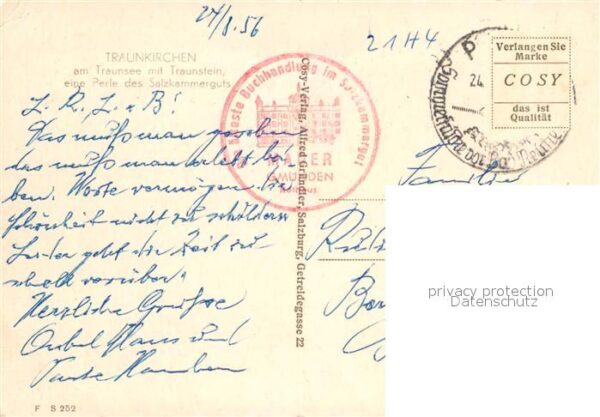 24/8.56
21H4
TRAUNKIRCHEN
am Traunsee mit Traunstein,
eine Perle des Salzkammerguts
L. R. L. u B!
Das muß man gesehen
das muß man erlebt ha-
ben. Worte vermögen die
Schönheit nicht zu schildern
Leider geht die Zeit zu
schnell vorüber.
Herzliche Grüße
Onkel Hans und
Tante
F S 252
älteste Buchhandlung im Salzkammergut
MADER
GMUNDEN
Rathaus
Cosy-Verlag, Alfred Gründler, Salzburg, Getreidegasse 22
P
24.
Verlangen Sie
Marke
COSY
das ist
Qualität
Familie
privacy protection
Datenschutz